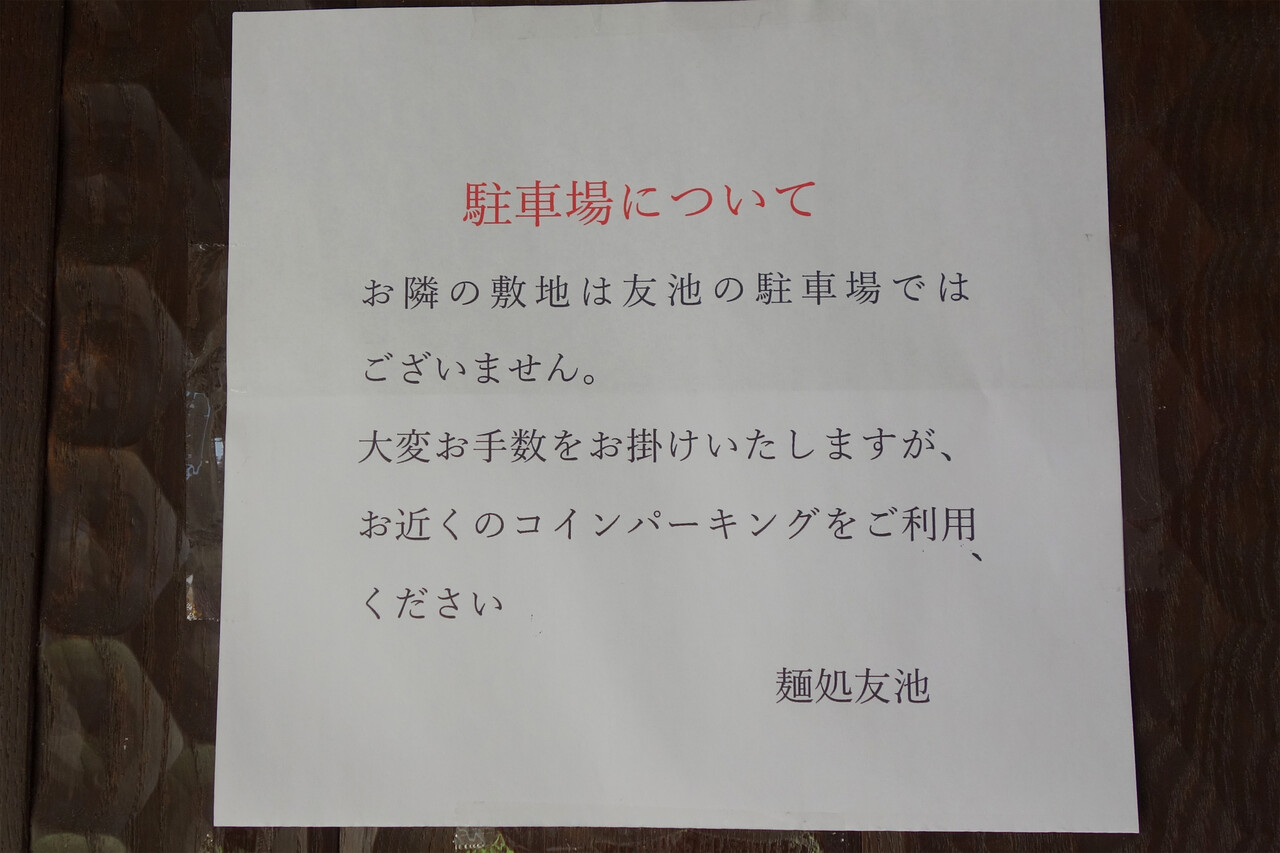 駐車場について
お隣の敷地は友池の駐車場では
ございません。
大変お手数をお掛けいたしますが、
お近くのコインパーキングをご利用
ください
麺処友池